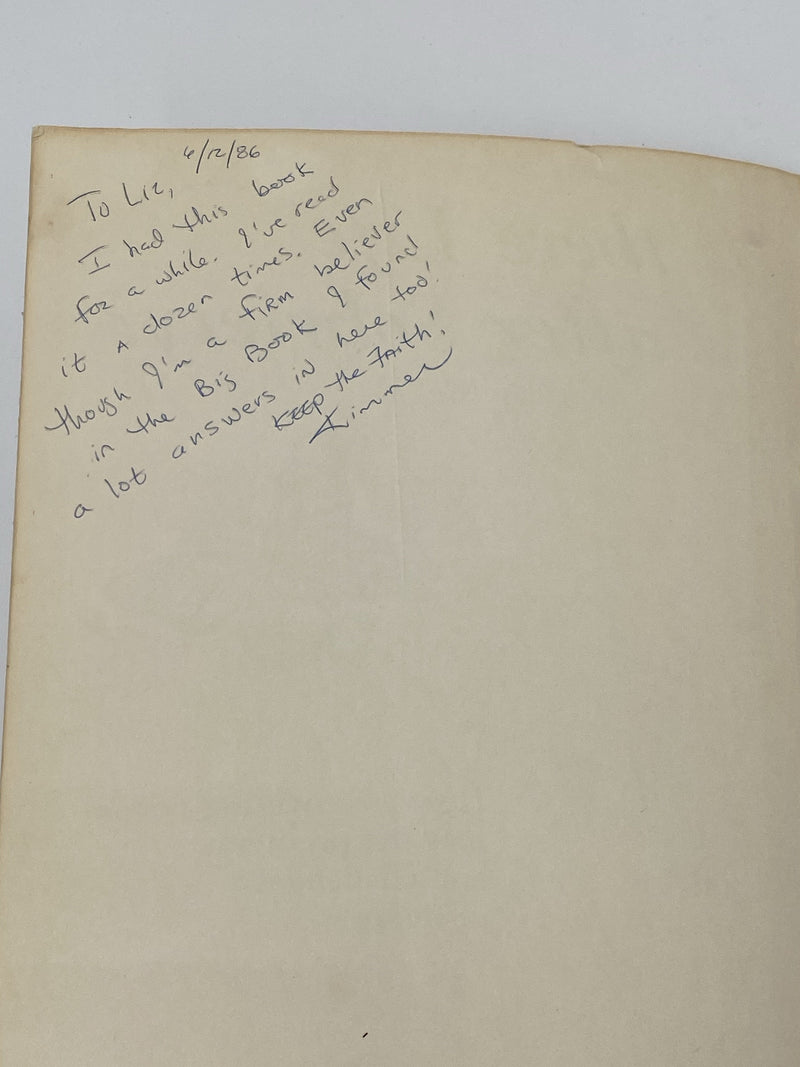 6/12/86
To Liz,
I had this book
for a while. I've read
it A dozen times. Even
though I'm a firm believer
in the Big Book I found
a lot answers in here too!
KEEP the FAith!